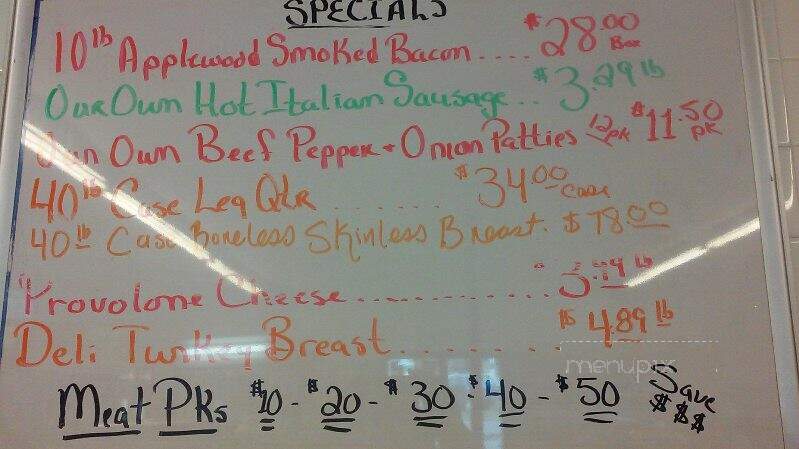 SPECIALS
10 lb Applewood Smoked Bacon.... $28.00 Box
Our Own Hot Italian Sausage.. $3.29 lb
Our Own Beef Pepper + Onion Patties 12pk $11.50 PK
40 lb Case Leg Qtr ....... $34.00 Case
40 lb Case Boneless Skinless Breast. $78.00
Provolone Cheese ............ lb
Deli Turkey Breast........ $4.89 lb
Meat PKs $10 - $20 - $30 - $40 - $50 Save $$$
menupix